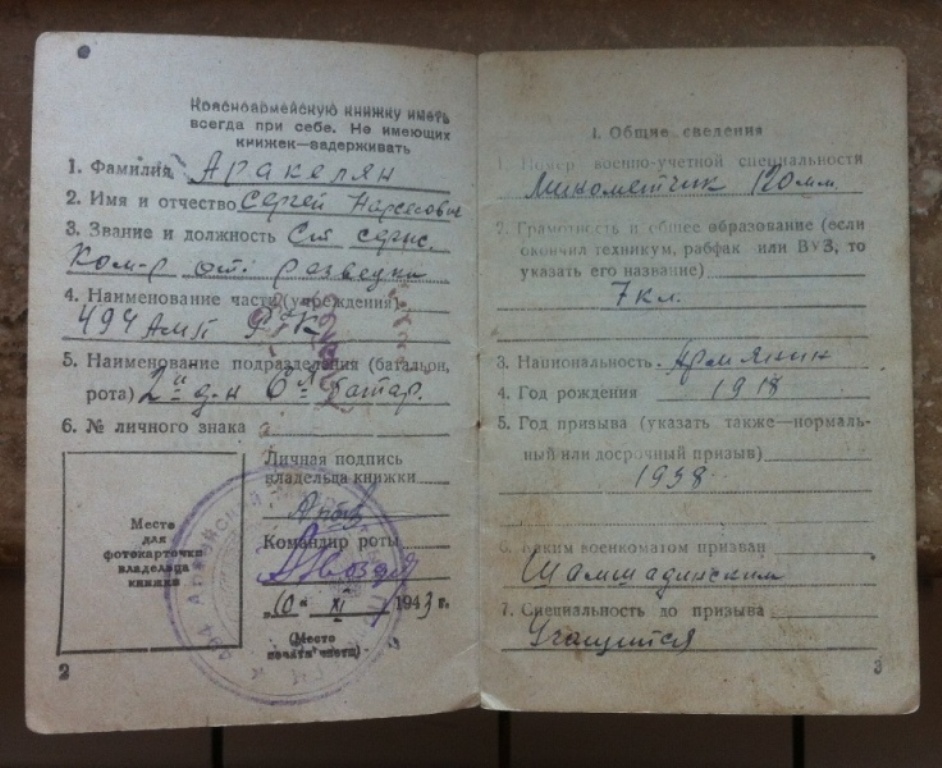 Красноармейскую книжку иметь
всегда при себе. Не имеющих
книжек—задерживать
1. Фамилия Аракелян
2. Имя и отчество Сергей Нарсесович
3. Звание и должность Ст серж.
Ком-р от. разведки
4. Наименование части (учреждения)
494 АМП РГК
5. Наименование подразделения (батальон,
рота) 2й д-н 6я батар.
6. № личного знака
Личная подпись
владельца книжки
Командир роты
„10“ XI 1943 г.
(Место
печати части)
Место
для
фотокарточки
владельца
книжки
2
I. Общие сведения
1. Номер военно-учетной специальности
Минометчик 120 мм.
2. Грамотность и общее образование (если
окончил техникум, рабфак или ВУЗ, то
указать его название)
7 кл.
3. Национальность. Армянин
4. Год рождения 1918
5. Год призыва (указать также—нормаль-
ный или досрочный призыв)
1938
6. Каким военкоматом призван
Шамшадинским
7. Специальность до призыва
Учащийся
3